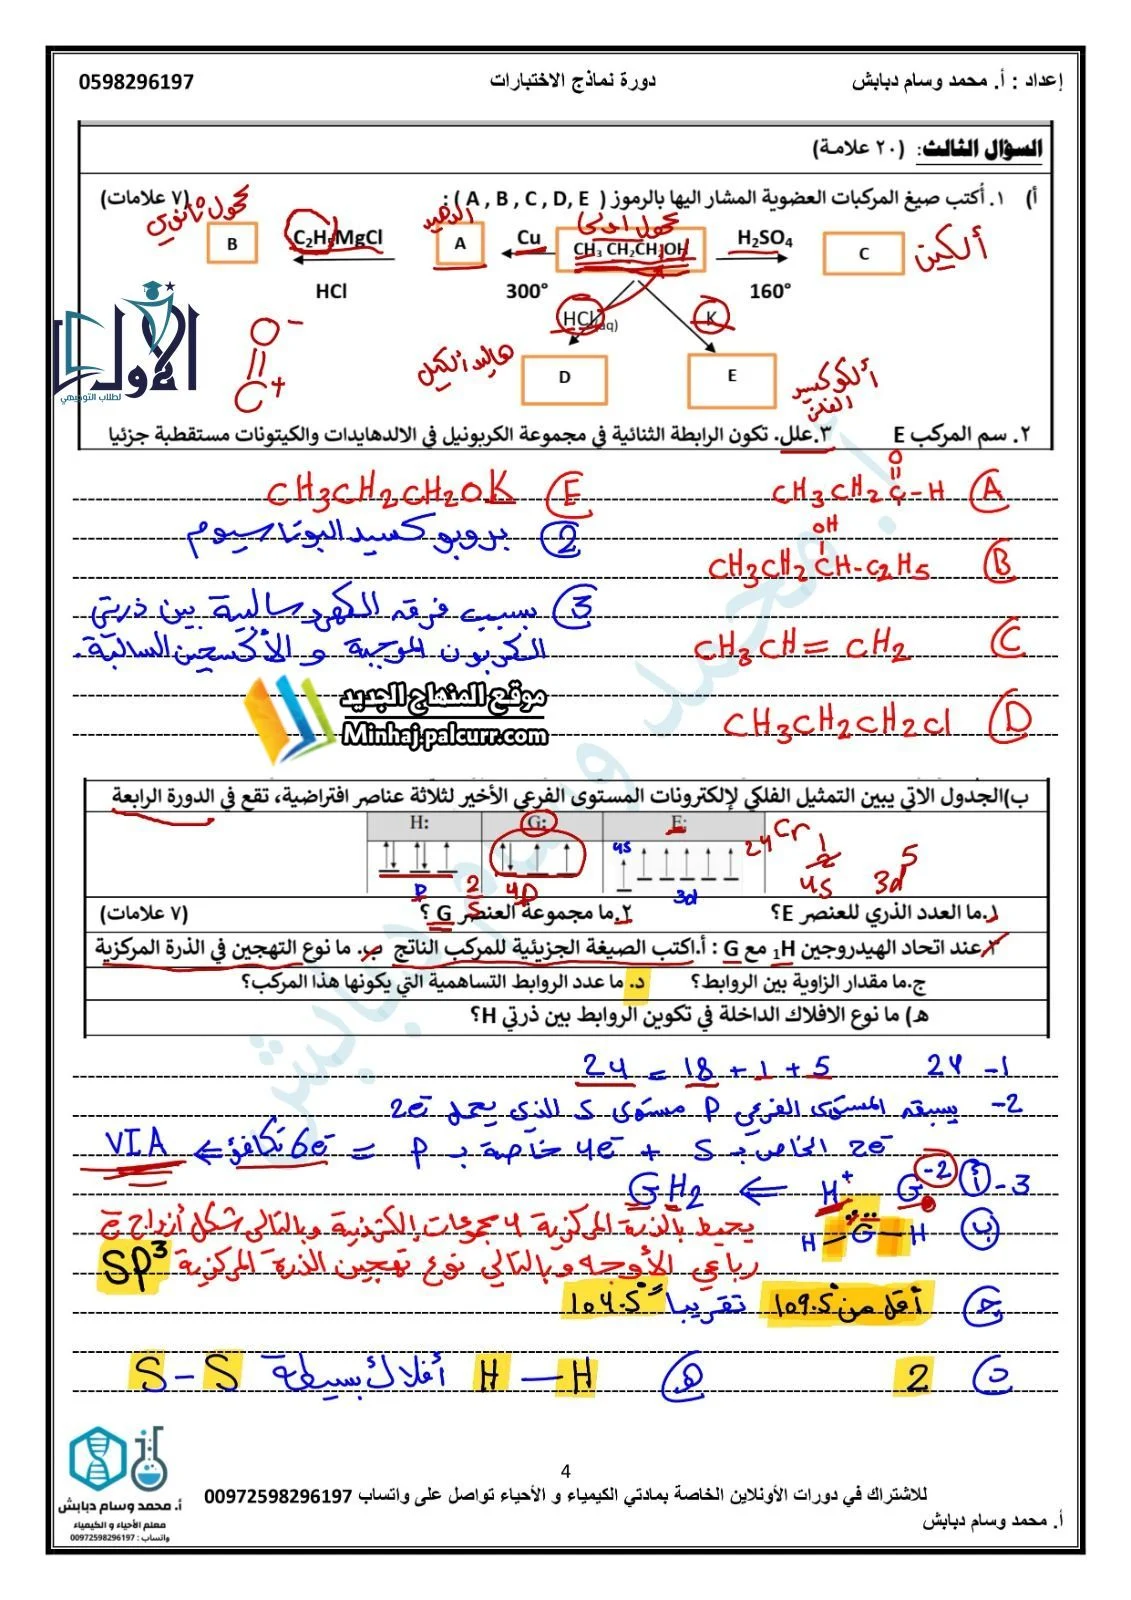 إعداد : أ. محمد وسام دبابش دورة نماذج الاختبارات 0598296197
السؤال الثالث: (٢٠ علامة)
أ) ١. أكتب صيغ المركبات العضوية المشار اليها بالرموز ( A , B , C , D, E ) : (٧ علامات)
كحول ثانوي الدهيد كحول أولي
B C₂H₅MgCl A Cu CH₃ CH₂CH₂OH H₂SO₄ C ألكين
HCl 300° 160°
HCl(aq) K
O⁻
C⁺
هاليد ألكيل D E ألكوكسيد الفلز
الأول
لطلاب التوجيهي
٢. سم المركب E ٣.علل. تكون الرابطة الثنائية في مجموعة الكربونيل في الالدهايدات والكيتونات مستقطبة جزئيا
O
A CH3CH2C-H E CH3CH2CH2OK
OH
2 بروبوكسيد البوتاسيوم
B CH3CH2CH-C2H5
3 بسبب فرق الكهروسالبية بين ذرتي
C CH3CH=CH2 الكربون الموجبة و الأكسجين السالبة.
D CH3CH2CH2Cl
موقع المنهاج الجديد
Minhaj.palcurr.com
ب)الجدول الاتي يبين التمثيل الفلكي لإلكترونات المستوى الفرعي الأخير لثلاثة عناصر افتراضية، تقع في الدورة الرابعة
H: G: E: 24Cr
4S
P 2 S 4P 3d 4S 1 3d 5
١.ما العدد الذري للعنصر E؟ ٢.ما مجموعة العنصر G ؟ (٧ علامات)
٣.عند اتحاد الهيدروجين ₁H مع G : أ.اكتب الصيغة الجزيئية للمركب الناتج ب. ما نوع التهجين في الذرة المركزية
ج.ما مقدار الزاوية بين الروابط؟ د. ما عدد الروابط التساهمية التي يكونها هذا المركب؟
هـ) ما نوع الافلاك الداخلة في تكوين الروابط بين ذرتي H؟
1- 24 24 = 18 + 1 + 5
2- يسبقه المستوى الفرعي P مستوى S الذي يحمل 2e⁻
2e⁻ الخاص بـ S + 4e⁻ خاصة بـ P = 6e⁻ تكافؤ ⇐ VIA
3- أ G⁻² H⁺ ⇐ GH2
ب H-G-H يحيط بالذرة المركزية 4 مجموعات إلكترونية وبالتالي شكل أزواج ع
رباعي الأوجه وبالتالي نوع تهجين الذرة المركزية SP³
ج أقل من 109.5° تقريبا 104.5°
د 2 هـ H — H أفلاك بسيطة S - S
أ. محمد وسام دبابش
معلم الأحياء و الكيمياء
واتساب : 00972598296197
4
للاشتراك في دورات الأونلاين الخاصة بمادتي الكيمياء و الأحياء تواصل على واتساب 00972598296197
أ. محمد وسام دبابش
أ. محمد وسام دبابش